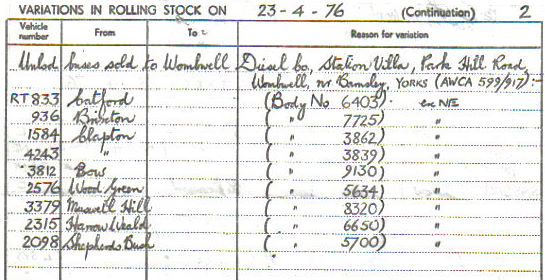 VARIATIONS IN ROLLING STOCK ON 23-4-76 (Continuation) 2
Vehicle number From To Reason for variation
Unlsd buses sold to Wombwell Diesel Co, Station Villa, Park Hill Road,
Wombwell, nr Barnsley, YORKS (AWCA 599/917):-
RT 833 Catford (Body No 6403) exc N/E
936 Brixton ( " 7725) "
1584 Clapton ( " 3862) "
4243 " ( " 3839) "
3812 Bow ( " 9130) "
2576 Wood Green ( " 5634) "
3379 Muswell Hill ( " 8320) "
2315 Harrow Weald ( " 6650) "
2098 Shepherds Bush ( " 5700) "